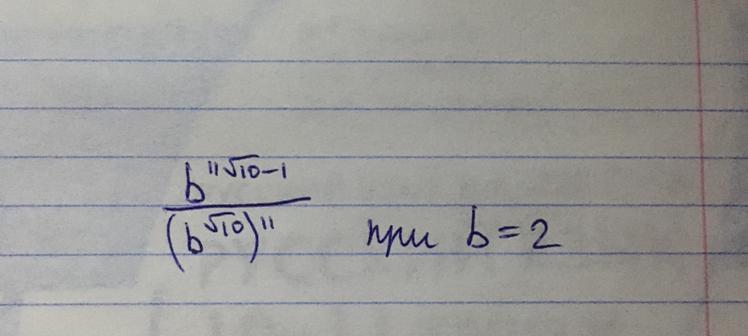 b^{11√10-1}
(b^{√10})^{11} при b=2